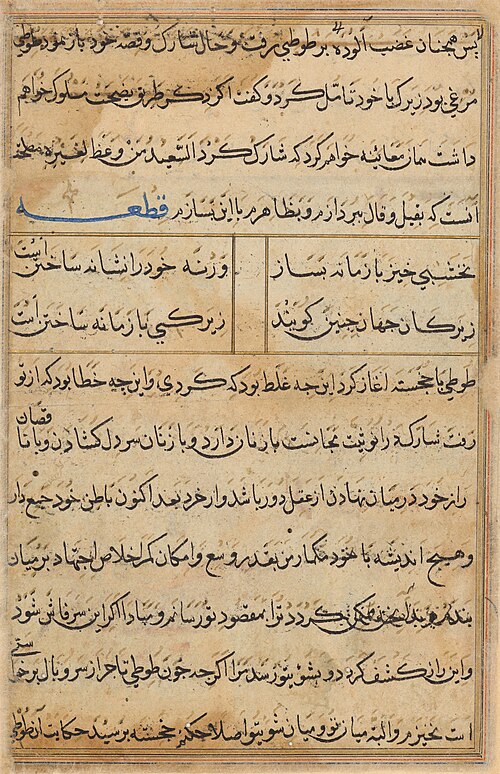 پس همچنان غضب آلوده بر طوطی رفت و حال شارک و قصه خود باز نمود طوطی
مرغی بود زیرک با خود تامل کرد و گفت اگر دگر طریق نصیحت مسلوک خواهم
داشت همان معاینه خواهم کرد که شارک کرد السعید من وعظ لغیره مصلحت
آنست که بقیل و قال بپردازم و بظاهر م با این بسازم قطعه
نخشبی خیز با زمانه بساز ورنه خود را نشانه ساختن است
زیرکان جهان چنین گویند زیرکی با زمانه ساختن است
طوطی با خجسته آغاز کرد این چه غلط بود که کردی و این چه خطا بود که از تو
رفت شارک که را نوثیت مجانست با زنان دارد و با زنان سر دل گشادن و با ناقصان
راز خود در میانه نهادن از عقل دور باشد و از خرد بعید اکنون باطن خود جمع دار
و هیچ اندیشه با خود مگمار من بقدر وسع و امکان کمر اخلاص اجتهاد بر میان
بندم هر چند این ممکن گردد ترا بمقصود تو رسانم و مبادا اگر این سر فاش شود
و این راز کشف گردد و بشوی تو رسد ترا اگر چه چون طوطی تاجر از سر و بال بر خواستی
است نخیزم و البته میان تو و میان شوی تو اصلاحکنم خجسته پرسید حکایت آن طوطی